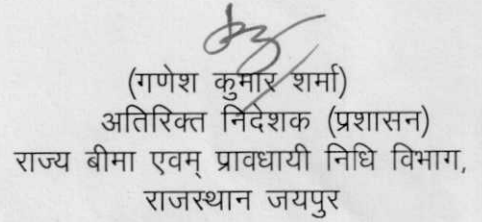 (गणेश कुमार शर्मा)
अतिरिक्त निदेशक (प्रशासन)
राज्य बीमा एवम् प्रावधायी निधि विभाग,
राजस्थान जयपुर